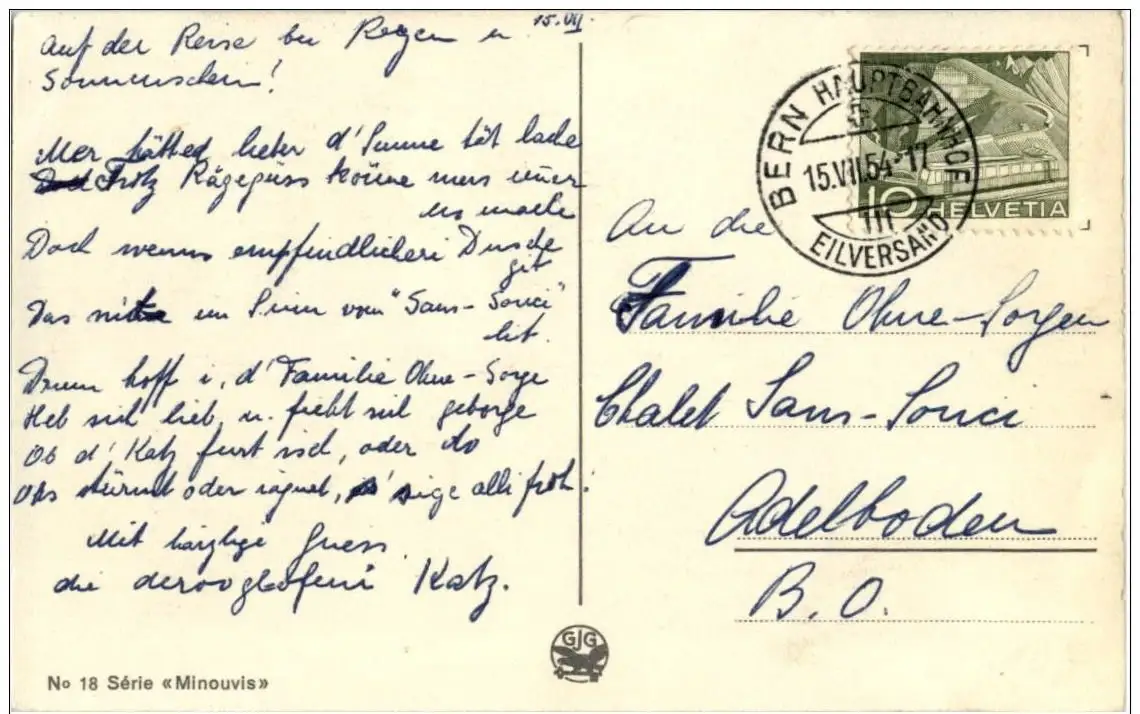 15.VII.
Auf der Reise bei Regen u
Sonnenschein!
Mer hätted lieber d'Sunne tät lache
Trotz Rägegüss könne mers immer
no mache
Doch wenns empfindlicheri Dusche
git
Das nüme im Sinn vom "Sans-Souci"
lit.
Drum hoff i, d'Familie Ohne-Sorge
Heb sich lieb u. fiehlt sich geborge
Ob d'Katz furt isch, oder do
Obs stürmt oder rägnet, sige alli froh!
Mit härzlige Gruess
die dervogloffeni Katz.
No 18 Série «Minouvis»
GJG
BERN HAUPTBAHNHOF
15.VII.54-17
III
EILVERSAND
10 HELVETIA
An die
Familie Ohne-Sorgen
Chalet Sans-Souci
Adelboden
B.O.